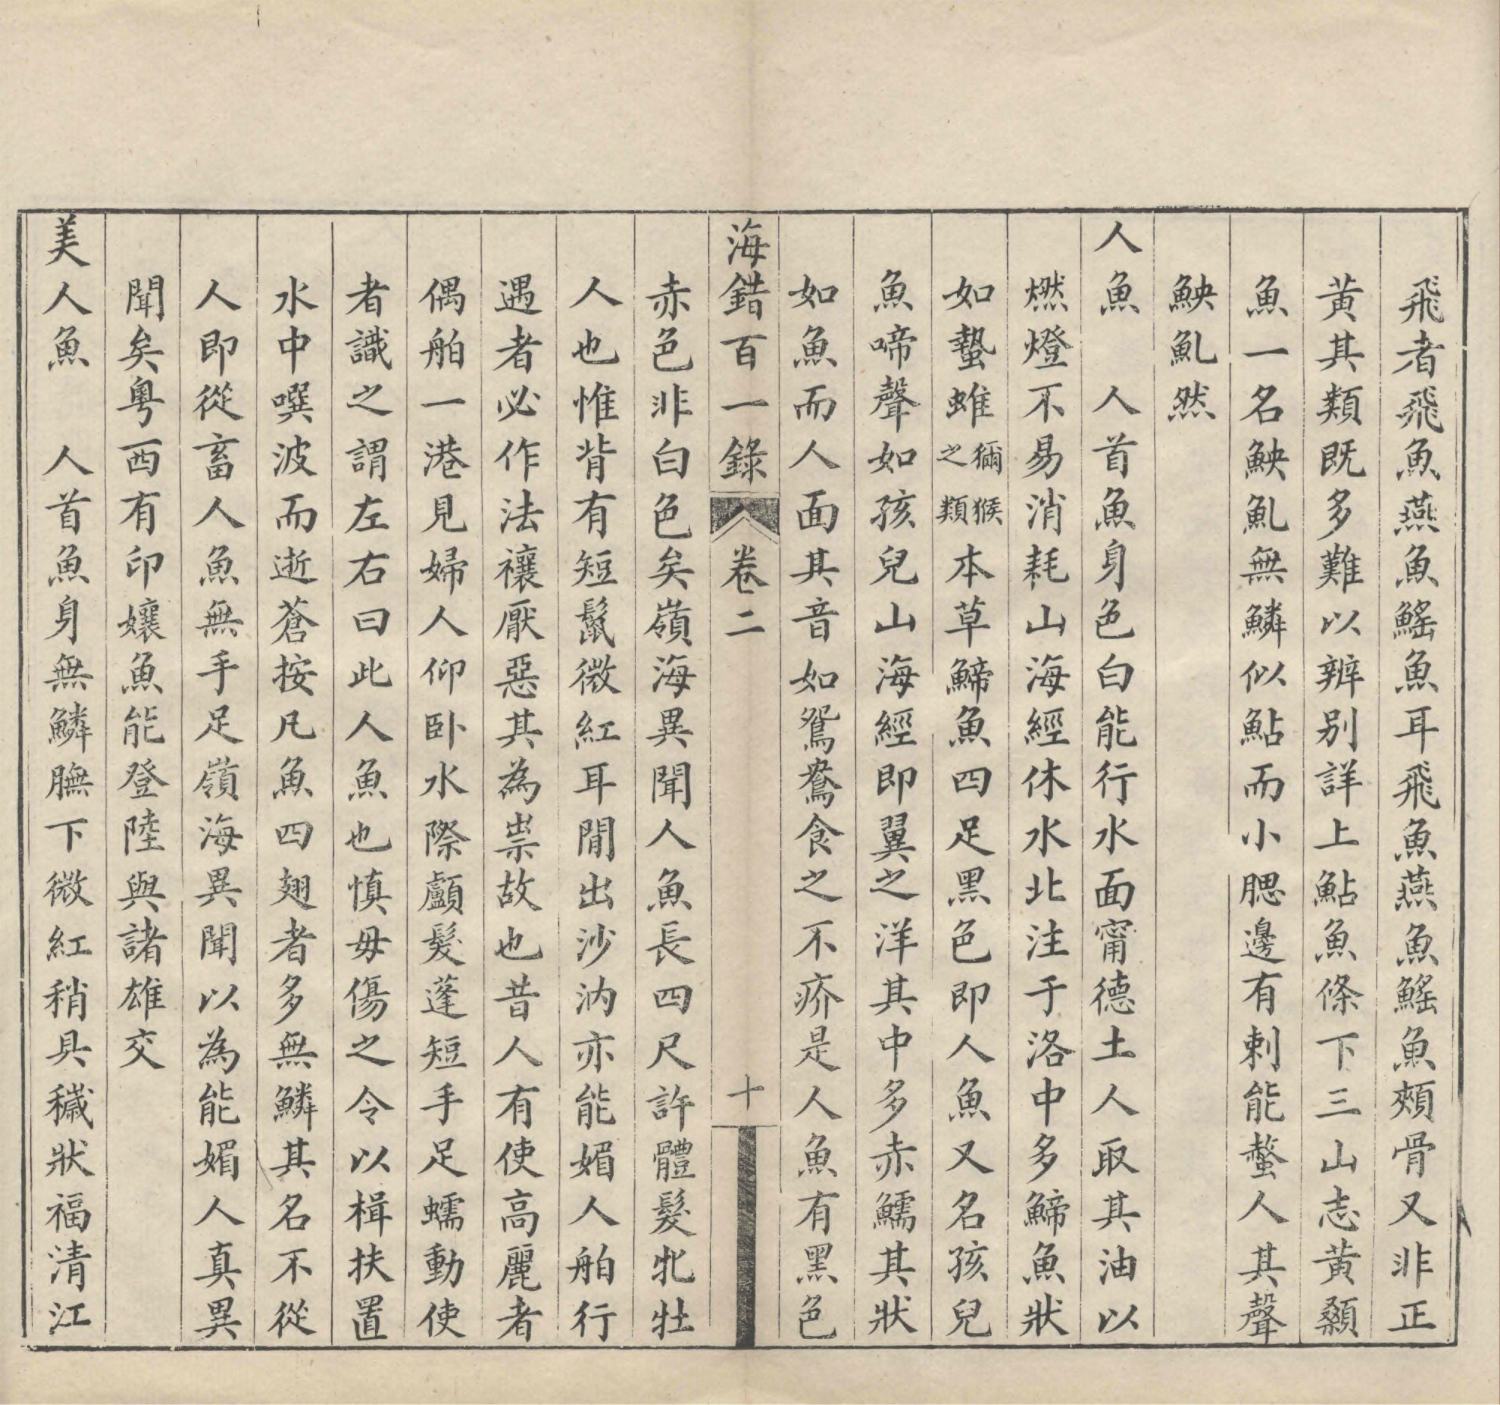 飛者飛魚燕魚鰩魚耳飛魚燕魚鰩魚頰骨又非正
黃其類既多難以辨別詳上鮎魚條下三山志黃顙
魚一名鉠魤無鱗似鮎而小腮邊有刺能螫人其聲
鉠魤然
人魚 人首魚身色白能行水面甯德土人取其油以
燃燈不易消耗山海經休水北注于洛中多䱱魚狀
如蟄蜼獼猴之類本草䱱魚四足黑色即人魚又名孩兒
魚啼聲如孩兒山海經即翼之洋其中多赤鱬其狀
如魚而人面其音如鴛鴦食之不疥是人魚有黑色
海錯百一錄 卷二 十
赤色非白色矣嶺海異聞人魚長四尺許體髮牝牡
人也惟背有短鬣微紅耳閒出沙汭亦能媚人舶行
遇者必作法禳厭惡其為祟故也昔人有使高麗者
偶舶一港見婦人仰卧水際顱髮蓬短手足蠕動使
者識之謂左右曰此人魚也慎毋傷之令以楫扶置
水中噀波而逝蒼按凡魚四翅者多無鱗其名不從
人即從畜人魚無手足嶺海異聞以為能媚人真異
聞矣粵西有印孃魚能登陸與諸雄交
美人魚 人首魚身無鱗膴下微紅稍具穢狀福清江